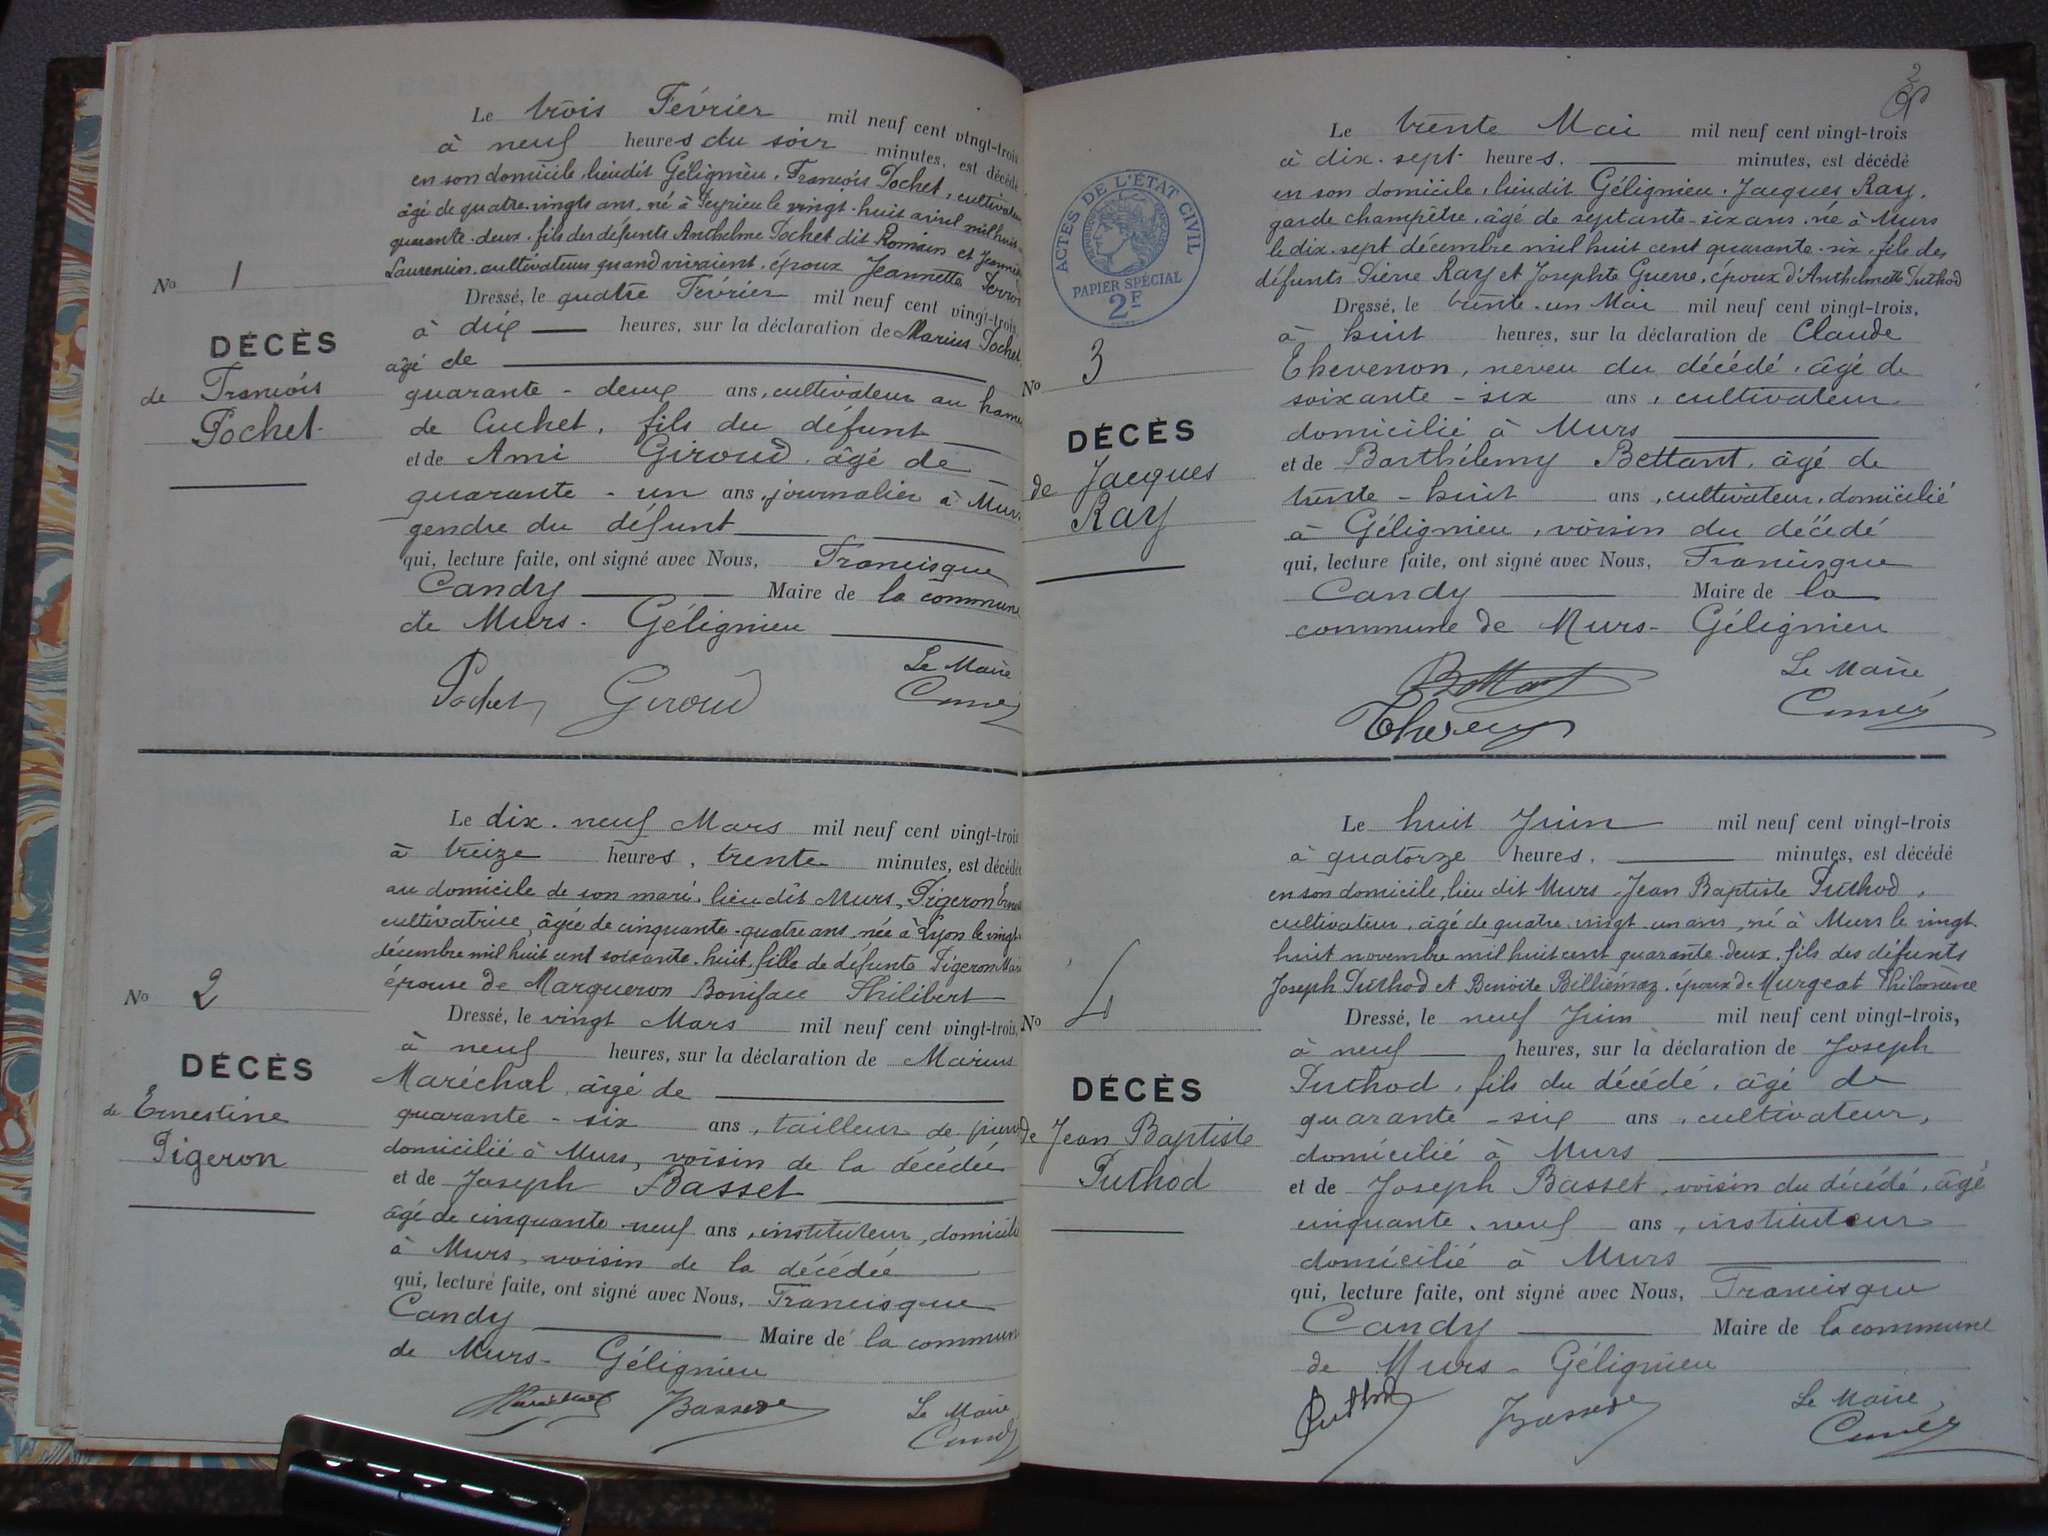 Le trois Février mil neuf cent vingt-trois
à neuf heures du soir minutes, est décédé
en son domicile, lieudit Gélignieu, François Pochet, cultivateu
âgé de quatre-vingts ans, né à Peyrieu le vingt-huit avril mil huit
quarante-deux, fils des défunts Anthelme Pochet dit Romain et Jeannette
Laurencin, cultivateurs quand vivaient, époux Jeannette
Dressé, le quatre Février mil neuf cent vingt-trois,
à dix heures, sur la déclaration de Marius Pochet,
âgé de
quarante-deux ans, cultivateur au hame
de Cuchet, fils du défunt
et de Ami Giroud, âgé de
quarante-un ans, journalier à Murs
gendre du défunt
qui, lecture faite, ont signé avec Nous, Francisque
Candy Maire de la commune
de Murs-Gélignieu
Le Maire
Pochet Giroud
No 1
DÉCÈS
de François
Pochet
Le dix-neuf Mars mil neuf cent vingt-trois
à treize heures, trente minutes, est décédée
au domicile de son mari, lieu dit Murs, Pigeron
cultivatrice, âgée de cinquante-quatre ans, née à Lyon le vingt-
décembre mil huit cent soixante-huit, fille de défunte Pigeron Mari
épouse de Marqueron Boniface Philibert
Dressé, le vingt Mars mil neuf cent vingt-trois,
à neuf heures, sur la déclaration de Marius
Maréchal, âgé de
quarante-six ans, tailleur de pierre
domicilié à Murs, voisin de la décédée
et de Joseph Basset
âgé de cinquante-neuf ans, instituteur, domicilié
à Murs, voisin de la décédée
qui, lecture faite, ont signé avec Nous, Francisque
Candy Maire de la commun
de Murs-Gélignieu
Maréchal Basset Le Maire
No 2
DÉCÈS
de Ernestine
Pigeron
2
Le trente Mai mil neuf cent vingt-trois
à dix-sept heures, minutes, est décédé
en son domicile, lieudit Gélignieu, Jacques Ray,
garde champêtre, âgé de septante-six ans, né à Murs
le dix-sept décembre mil huit cent quarante-six, fils des
défunts Pierre Ray et Josephte Guerre, époux d'Anthelmette Puthod
Dressé, le trente-un Mai mil neuf cent vingt-trois,
à huit heures, sur la déclaration de Claude
Thevenon, neveu du décédé, âgé de
soixante-six ans, cultivateur
domicilié à Murs
et de Barthélemy Bettant, âgé de
trente-huit ans, cultivateur, domicilié
à Gélignieu, voisin du décédé
qui, lecture faite, ont signé avec Nous, Francisque
Candy Maire de la
commune de Murs-Gélignieu
Le Maire
ACTES DE L'ÉTAT CIVIL
PAPIER SPÉCIAL
2F
No 3
DÉCÈS
de Jacques
Ray
Le huit Juin mil neuf cent vingt-trois
à quatorze heures, minutes, est décédé
en son domicile, lieu dit Murs, Jean Baptiste Puthod,
cultivateur, âgé de quatre-vingt-un ans, né à Murs le vingt-
huit novembre mil huit cent quarante-deux, fils des défunts
Joseph Puthod et Benoite Billiémaz, époux de Murgeat Philomène
Dressé, le neuf Juin mil neuf cent vingt-trois,
à neuf heures, sur la déclaration de Joseph
Puthod, fils du décédé, âgé de
quarante-six ans, cultivateur,
domicilié à Murs
et de Joseph Basset, voisin du décédé, âgé
cinquante-neuf ans, instituteur
domicilié à Murs
qui, lecture faite, ont signé avec Nous, Francisque
Candy Maire de la commune
de Murs-Gélignieu
Le Maire
Puthod Basset
No 4
DÉCÈS
de Jean Baptiste
Puthod